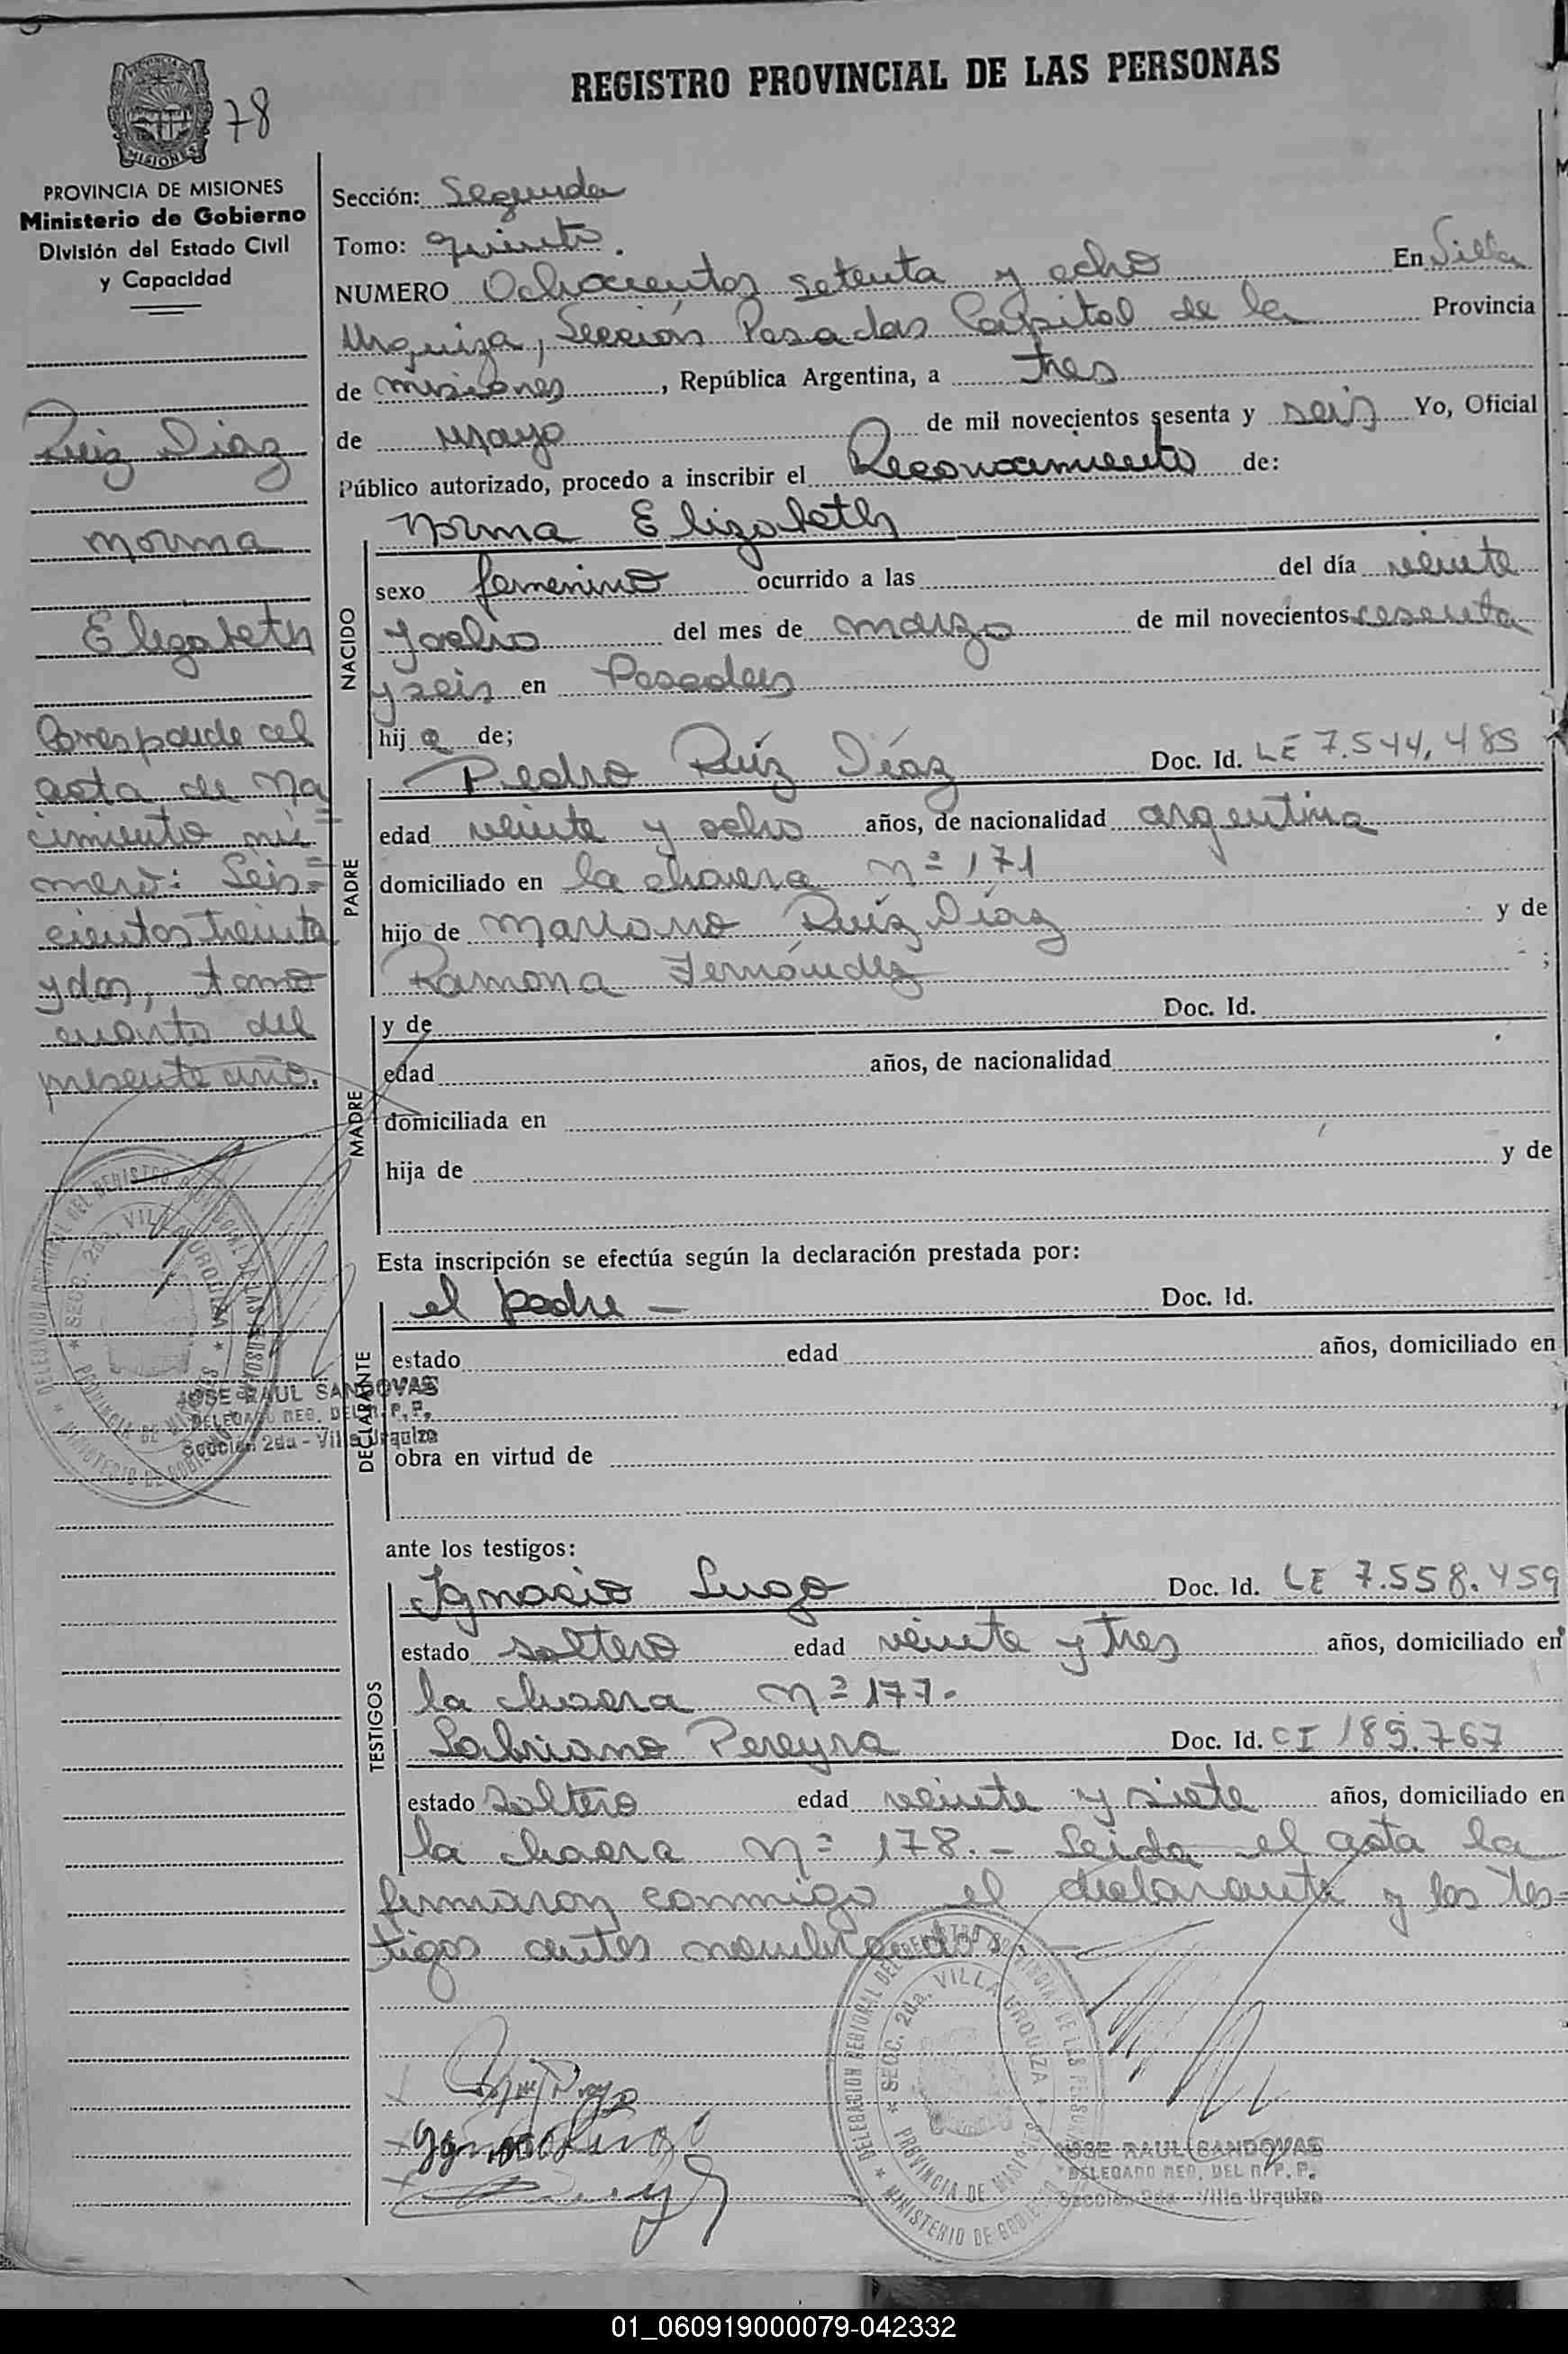 REGISTRO PROVINCIAL DE LAS PERSONAS
78
PROVINCIA DE MISIONES
Ministerio de Gobierno
División del Estado Civil
y Capacidad
Ruiz Diaz
Norma
Elizabeth
Corresponde al
acta de Na
cimiento nú=
mero: Seis=
cientos treinta
y dos, tomo
cuarto del
presente año.
DELEGACION REGIONAL DEL REGISTRO PROVINCIAL DE LAS PERSONAS
* SECC. 2da. VILLA URQUIZA *
PROVINCIA DE MISIONES
* MINISTERIO DE GOBIERNO
JOSE RAUL SANDOVAS
DELEGADO REG. DEL R. P. P.
Sección 2da - Villa Urquiza
Sección: Segunda
Tomo: quinto.
NUMERO Ochocientos setenta y ocho En Villa
Urquiza, Sección Posadas Capital de la Provincia
de misiones, República Argentina, a tres
de mayo de mil novecientos sesenta y seis Yo, Oficial
Público autorizado, procedo a inscribir el Reconocimiento de:
NACIDO
Norma Elizabeth
sexo femenino ocurrido a las del día veinte
y ocho del mes de marzo de mil novecientos sesenta
y seis en Posadas
hij a de;
PADRE
Pedro Ruíz Díaz Doc. Id. LE 7.544.485
edad veinte y ocho años, de nacionalidad argentina
domiciliado en la chacra Nº 171
hijo de Mariano Ruíz Díaz y de
Ramona Fernández ;
MADRE
y de Doc. Id.
edad años, de nacionalidad
domiciliada en
hija de y de
Esta inscripción se efectúa según la declaración prestada por:
DECLARANTE
el padre - Doc. Id.
estado edad años, domiciliado en
obra en virtud de
ante los testigos:
TESTIGOS
Ignacio Lugo Doc. Id. LE 7.558.459
estado soltero edad veinte y tres años, domiciliado en
la chacra Nº 177.
Pereyra Doc. Id. CI 189.767
estado soltero edad veinte y siete años, domiciliado en
la chacra Nº 178.- Leida el acta la
firmaron conmigo el declarante y los tes=
tigos antes nombrados.-
DELEGACION REGIONAL DEL REGISTRO PROVINCIAL DE LAS PERSONAS
* SECC. 2da. VILLA URQUIZA *
PROVINCIA DE MISIONES
* MINISTERIO DE GOBIERNO
JOSE RAUL SANDOVAS
DELEGADO REG. DEL R. P. P.
Sección 2da - Villa Urquiza
01_060919000079-042332